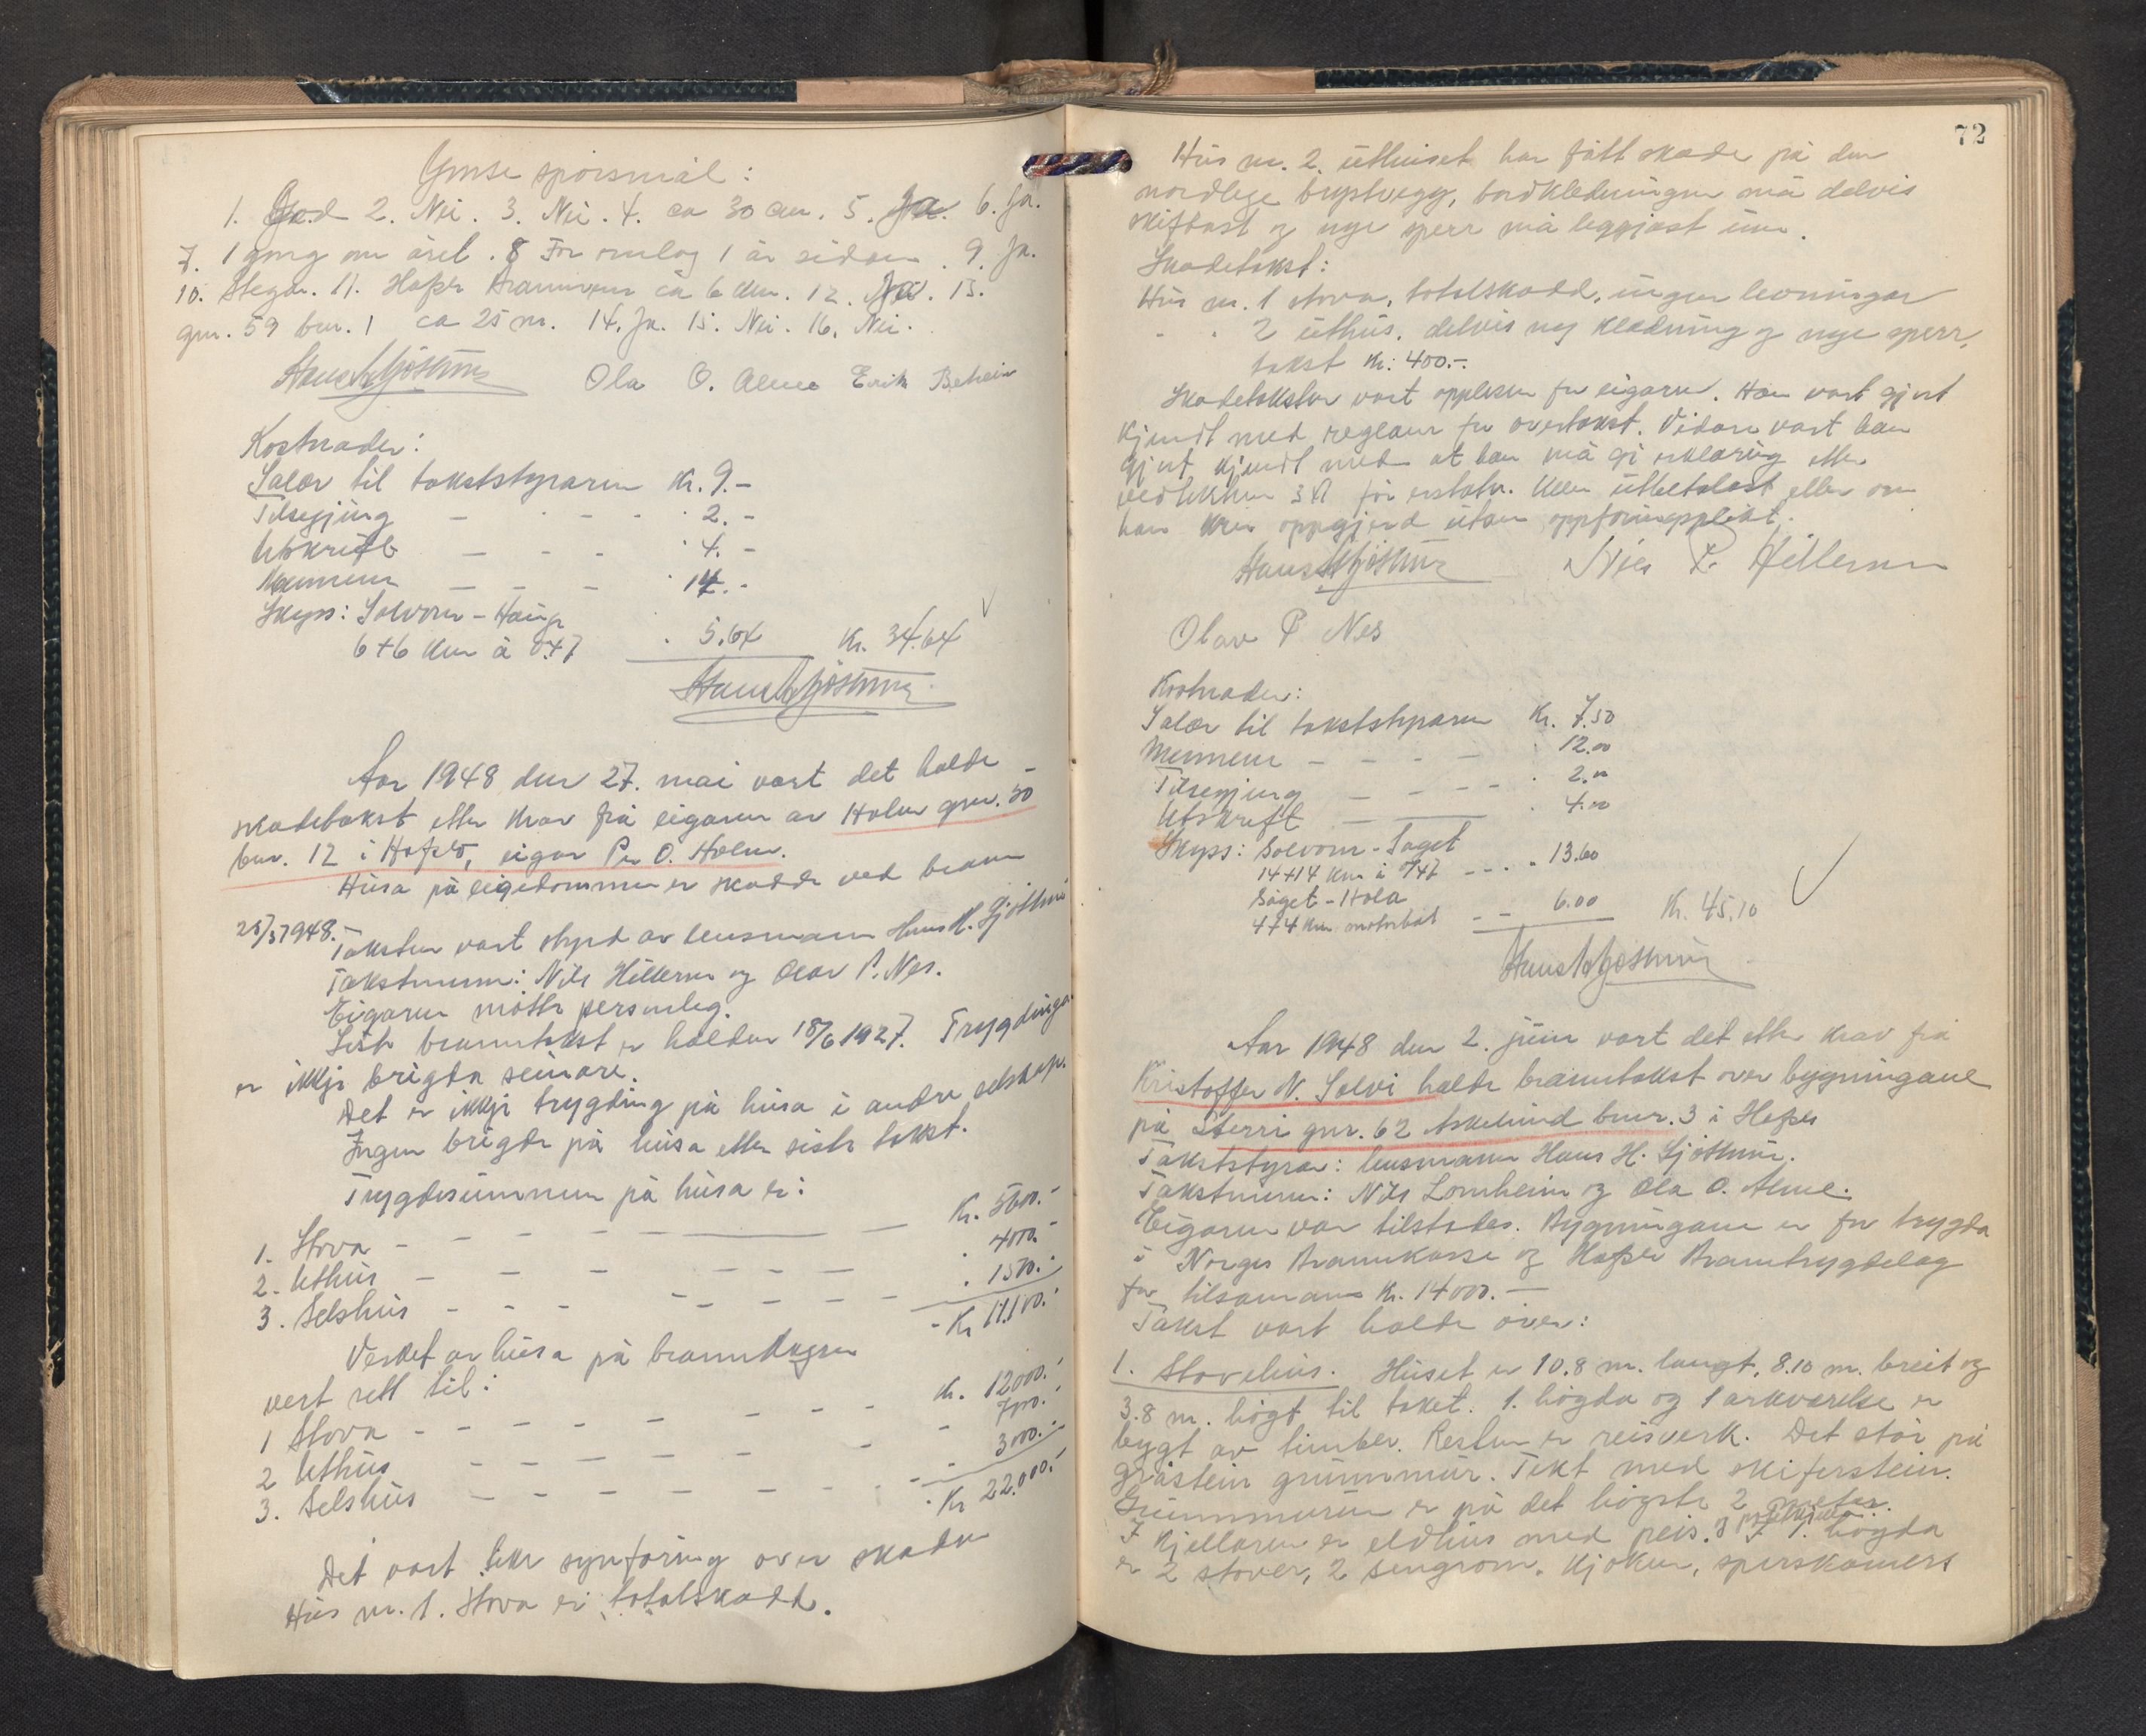 Ymse spörsmål:
1. God 2. Nei. 3. Nei. 4. ca 30 cm. 5. Ja. 6. Ja.
7. 1 gong om året. 8 For omlag 1 år sidan. 9. Ja.
10. Stegar. 11. Hafslo Brannvern ca 6 km. 12. Nei. 13.
gnr. 59 bnr. 1 ca 25 m. 14. Ja. 15. Nei. 16. Nei.
Hans H Sjøthun Ola O. Alme Erik Beheim
Kostnader:
Salær til takststyraren Kr. 9.-
Tilsegjing - - - - " 2.-
Utskrift - - - " 4.-
Mennene - - - " 14.-
Skyss: Solvorn - Haug
6+6 km à 0.47 " 5.64 Kr. 34.64
Hans H Sjøthun
Aar 1948 den 27. mai vart det halde
skadetakst etter krav frå eigaren av Holm gnr. 50
bnr. 12 i Hafslo, eigar Per O. Holm.
Husa på eigedommen er skadde ved brann
25/5 1948.
Taksten vart styrd av lensmann Hans H. Sjøthun
Takstmenn: Nils Hillern og Olav P. Nes.
Eigaren møtte personleg.
Siste branntakst er halden 18/6 1927. Trygdinga
er ikkje brigda seinare.
Det er ikkje trygding på husa i andre selskap.
Ingen brigde på husa etter siste takst.
Trygdesummen på husa er:
1. Stova - - - - Kr. 5600.-
2. Uthus - - - - - - " 4000.-
3. Selshus - - - - - - - " 1500.-
- Kr 11100.-
Verdet av husa på branndagen
vert sett til:
1 Stova - - - - - - - - Kr. 12000.-
2 Uthus - - - - - - - 7000.-
3. Selshus - - - - - - - - 3000.-
- Kr 22.000.-
Det vart so synfaring over skaden
Hus nr. 1. Stova er totalskadd.
72
Hus nr. 2. uthuset har fått skade på den
nordlege brystvegg, bordkledningen må delvis
skiftast og nye sperr må leggjast inn.
Skadetakst:
Hus nr. 1 stova, totalskadd, ingen levningar
- " 2 uthus, delvis ny kledning og nye sperr,
takst Kr: 400.-
Skadetaksten vart opplesen for eigaren. Han vart gjort
kjendt med reglane for overtakst. Vidare vart han
gjort kjendt med at han må gi erklæring etter
vedtektene § 31 før erstatn. kan utbetalast eller om
han krev oppgjerd utan oppføringsplikt.
Hans H Sjøthun Nils P. Hillern
Olav P Nes
Kostnader:
Salær til takststyraren Kr. 7.50
Mennene - - - - " 12.00
Tilsegjing - - - - " 2.00
Utskrift - - " 4.00
Skyss: Solvorn - Saget
14+14 km à 0.47 - - - " 13.60
Saget - Hola
4+4 km motorbåt - - 6.00 Kr. 45.10
Hans H Sjøthun
Aar 1948 den 2. juni vart det etter krav frå
Kristoffer N. Solvi halde branntakst over bygningane
på Sterri gnr. 62 Askelund bnr. 3 i Hafslo
Takststyrar: lensmann Hans H. Sjøthun.
Takstmenn: Nils Lomheim og Ola O. Alme.
Eigaren var tilstades. Bygningane er før trygda
i Norges Brannkasse og Hafslo Branntrygdelag
for tilsamans Kr. 14000.-
Takst vart halde over:
1. Stovehus. Huset er 10.8 m. langt, 8.10 m. breit og
3.8 m. høgt til taket. 1. høgda og 1 arkværelse er
bygt av timber. Resten er reisverk. Det står på
gråstein grunnmur. Tekt med skiferstein.
Grunnmuren er på det høgste 2 meter.
I kjellaren er eldhus med peis. I 1. høgda
er 2 stover, 2 sengrom, kjøken, spiskamers